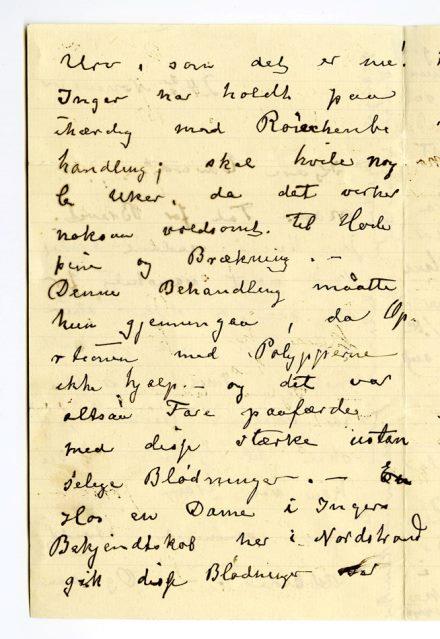 Uro, som det er nu!
Inger har holdt paa
ihærdig med Röntchenbe
handling; skal hvile nog
le Uker, da det virker
noksaa voldsomt. til Hode
pine og Brækning. –
Denne Behandling maatte
hun gjennemgaa, da Op-
rtionen med Polypperne
ikke hjalp. – og det var
altsaa Fare paafærde
med disse stærke ustan
selige Blødninger. –
Hos en Dame i Ingers
Bekjendtskab her i Nordstrand
gik disse Blødninger over